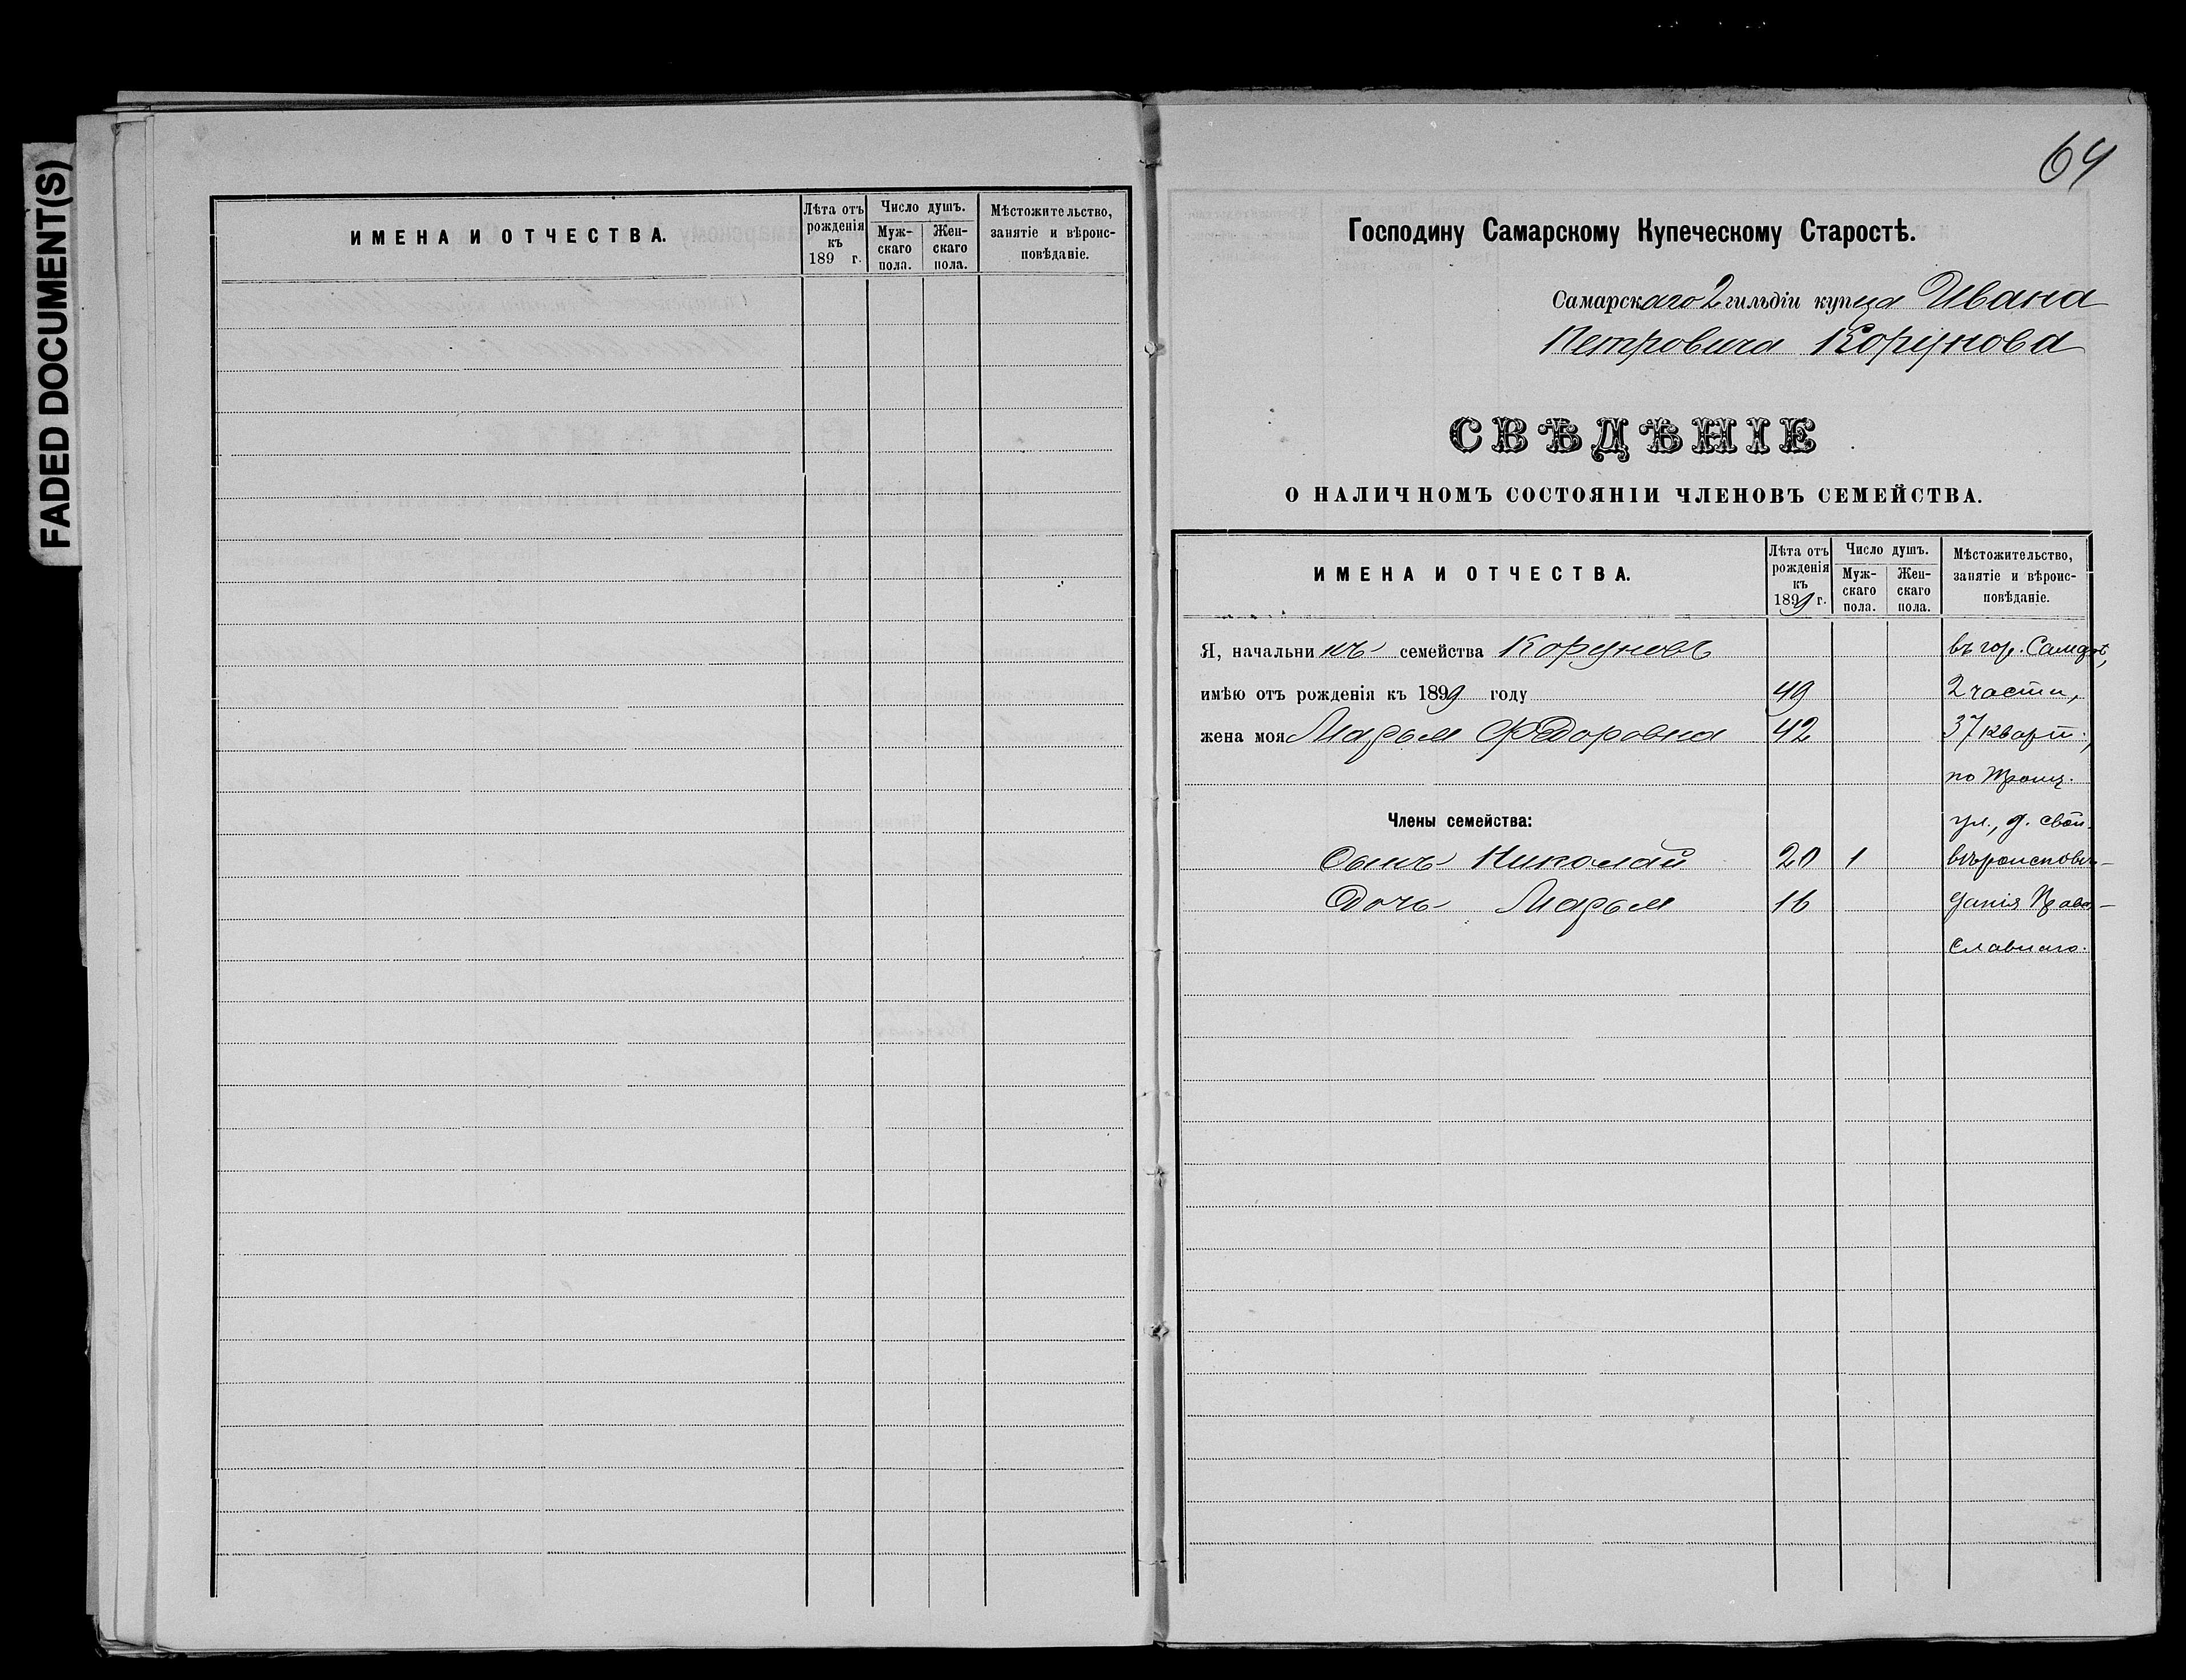 FADED DOCUMENT(S)
ИМЕНА И ОТЧЕСТВА.
Лѣта отъ рожденія къ 189 г.
Число душъ.
Муж-скаго пола.
Жен-скаго пола.
Мѣстожительство, занятіе и вѣроис-повѣданіе.
64
Господину Самарскому Купеческому Старостѣ.
Самарскаго 2 гильдіи купца Ивана
Петровича Корунова
СВѢДѢНІЕ
О НАЛИЧНОМЪ СОСТОЯНІИ ЧЛЕНОВЪ СЕМЕЙСТВА.
ИМЕНА И ОТЧЕСТВА.
Лѣта отъ рожденія къ 1899 г.
Число душъ.
Муж-скаго пола.
Жен-скаго пола.
Мѣстожительство, занятіе и вѣроис-повѣданіе.
Я, начальникъ семейства Коруновъ въ гор. Самарѣ,
имѣю отъ рожденія къ 1899 году 49 2 части,
жена моя Марья Федоровна 42 37 кварт.,
по Троиц.
Члены семейства: ул., д. свой.
Сынъ Николай 20 1 вѣроисповѣ-
Дочь Марья 16 данія Право-
славнаго.